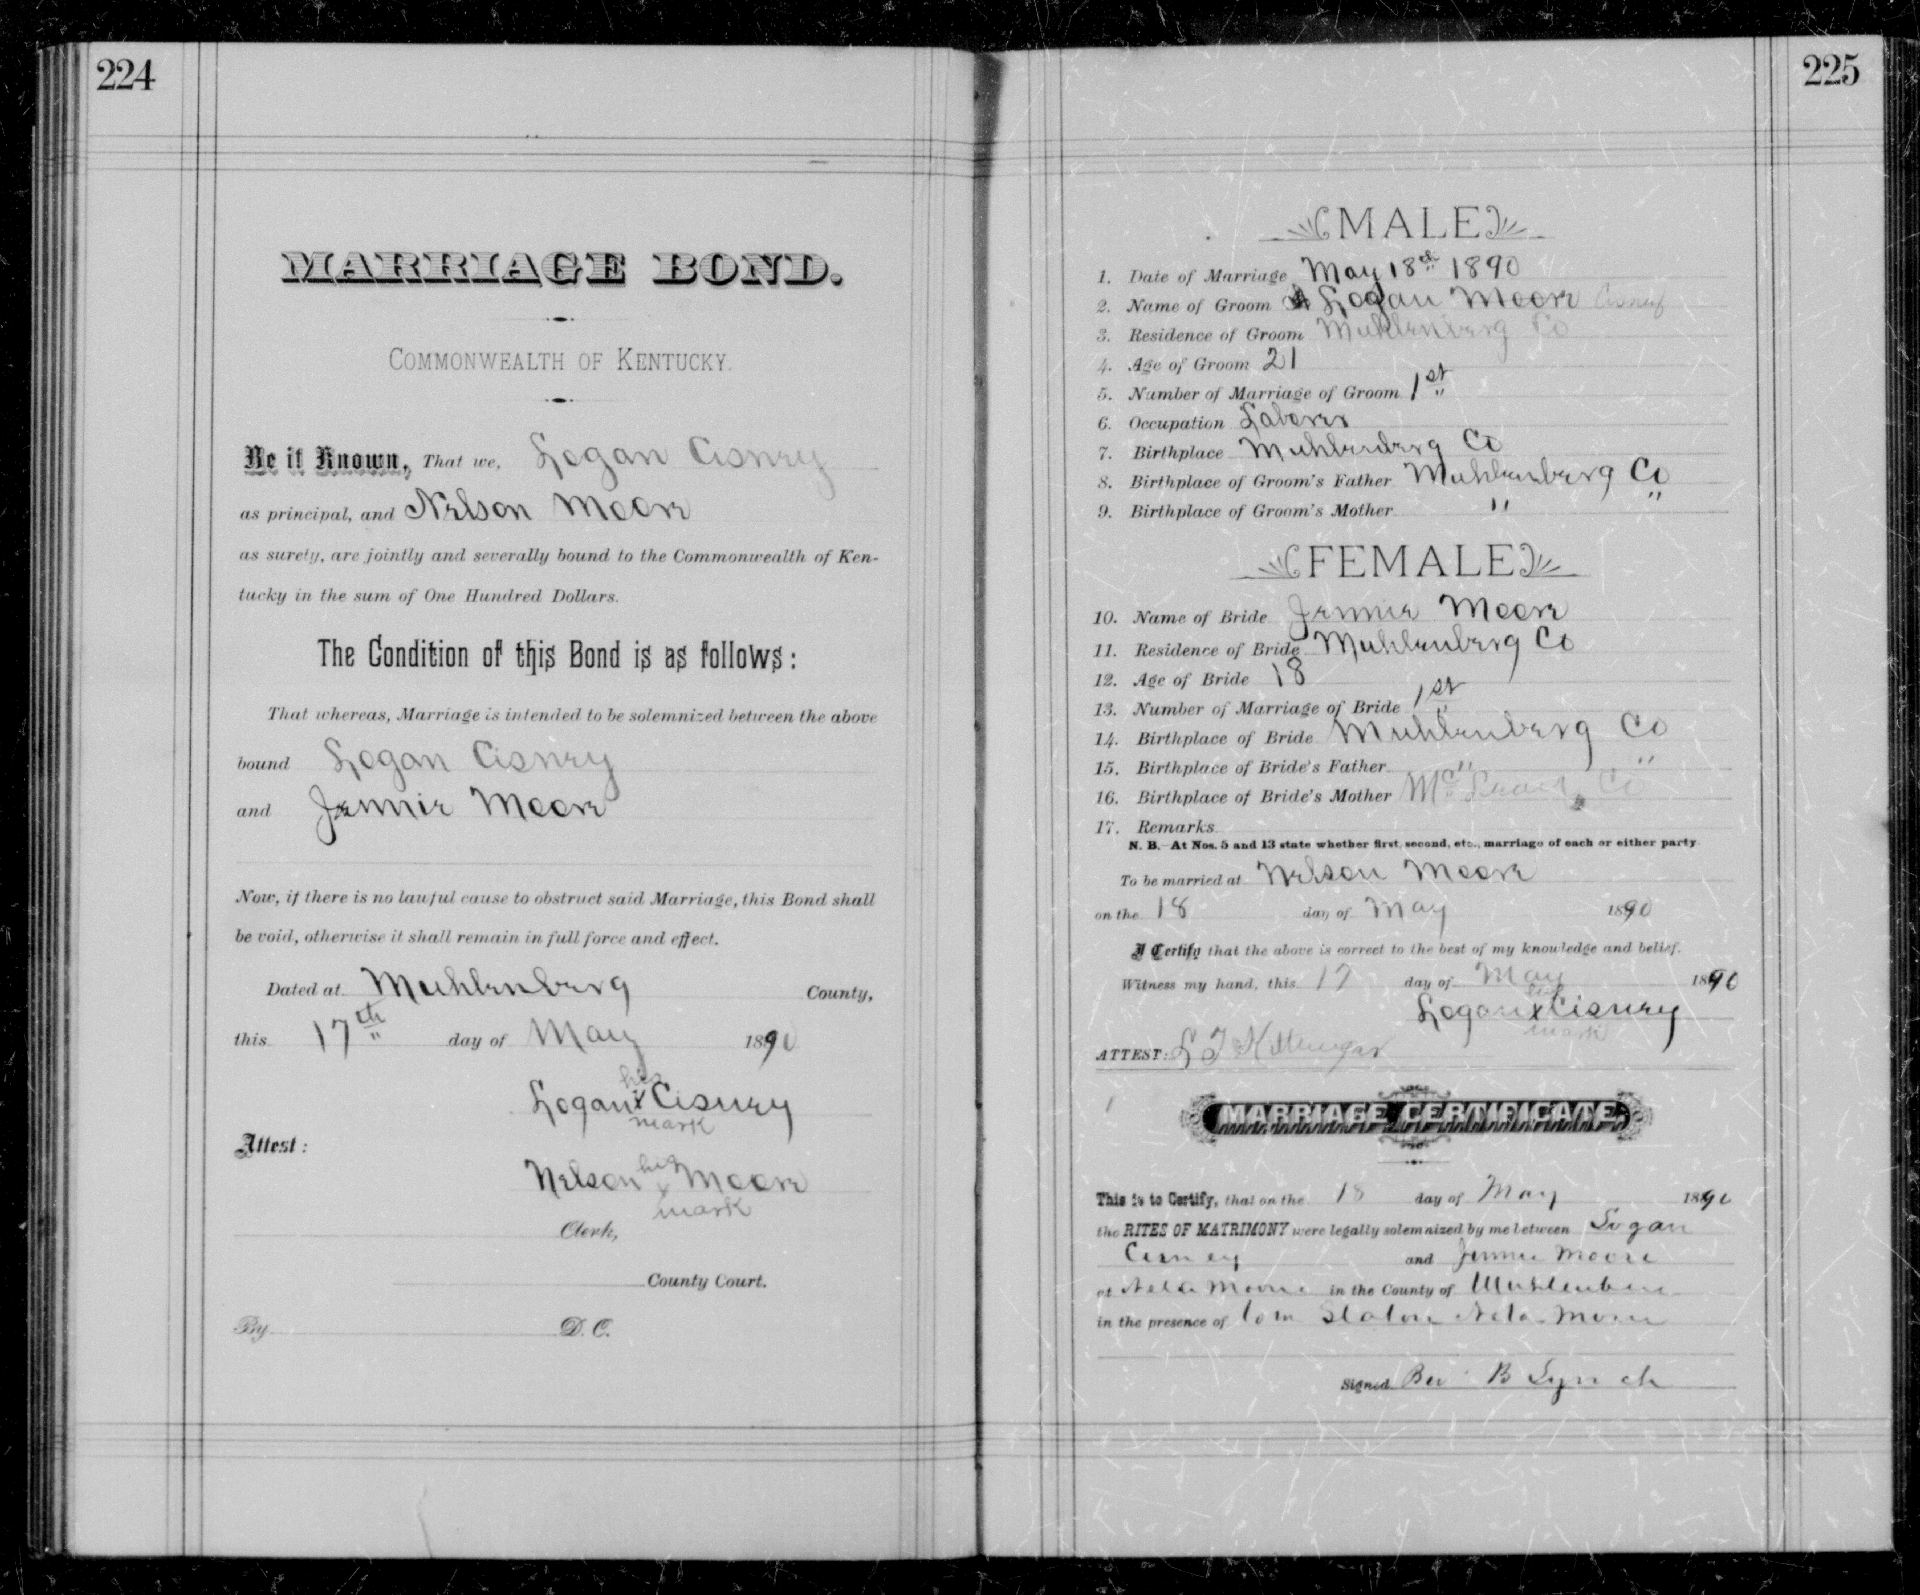 224
MARRIAGE BOND.
COMMONWEALTH OF KENTUCKY.
Be it Known, That we, Logan Cisney
as principal, and Nelson Moore
as surety, are jointly and severally bound to the Commonwealth of Ken-
tucky in the sum of One Hundred Dollars.
The Condition of this Bond is as follows:
That whereas, Marriage is intended to be solemnized between the above
bound Logan Cisney
and Jennie Moore
Now, if there is no lawful cause to obstruct said Marriage, this Bond shall
be void, otherwise it shall remain in full force and effect.
Dated at Muhlenberg County,
this 17th day of May 1890
his
Logan x Cisney
mark
Attest:
his
Nelson x Moore
mark
Clerk,
County Court.
By D. C.
225
MALE
1. Date of Marriage May 18th 1890
2. Name of Groom Logan Moore Cisney
3. Residence of Groom Muhlenberg Co
4. Age of Groom 21
5. Number of Marriage of Groom 1st
6. Occupation Laborer
7. Birthplace Muhlenberg Co
8. Birthplace of Groom's Father Muhlenberg Co
9. Birthplace of Groom's Mother " "
FEMALE
10. Name of Bride Jennie Moore
11. Residence of Bride Muhlenberg Co
12. Age of Bride 18
13. Number of Marriage of Bride 1st
14. Birthplace of Bride Muhlenberg Co
15. Birthplace of Bride's Father " "
16. Birthplace of Bride's Mother Co
17. Remarks
N. B.—At Nos. 5 and 13 state whether first, second, etc., marriage of each or either party
To be married at Nelson Moore
on the 18 day of May 1890
I Certify that the above is correct to the best of my knowledge and belief.
Witness my hand, this 17 day of May 1890
his
Logan x Cisney
mark
ATTEST:
MARRIAGE CERTIFICATE.
This is to Certify, that on the 18 day of May 1890
the RITES OF MATRIMONY were legally solemnized by me between Logan
Cisney and Jennie Moore
at Moore in the County of
in the presence of Tom
Signed B Lynch